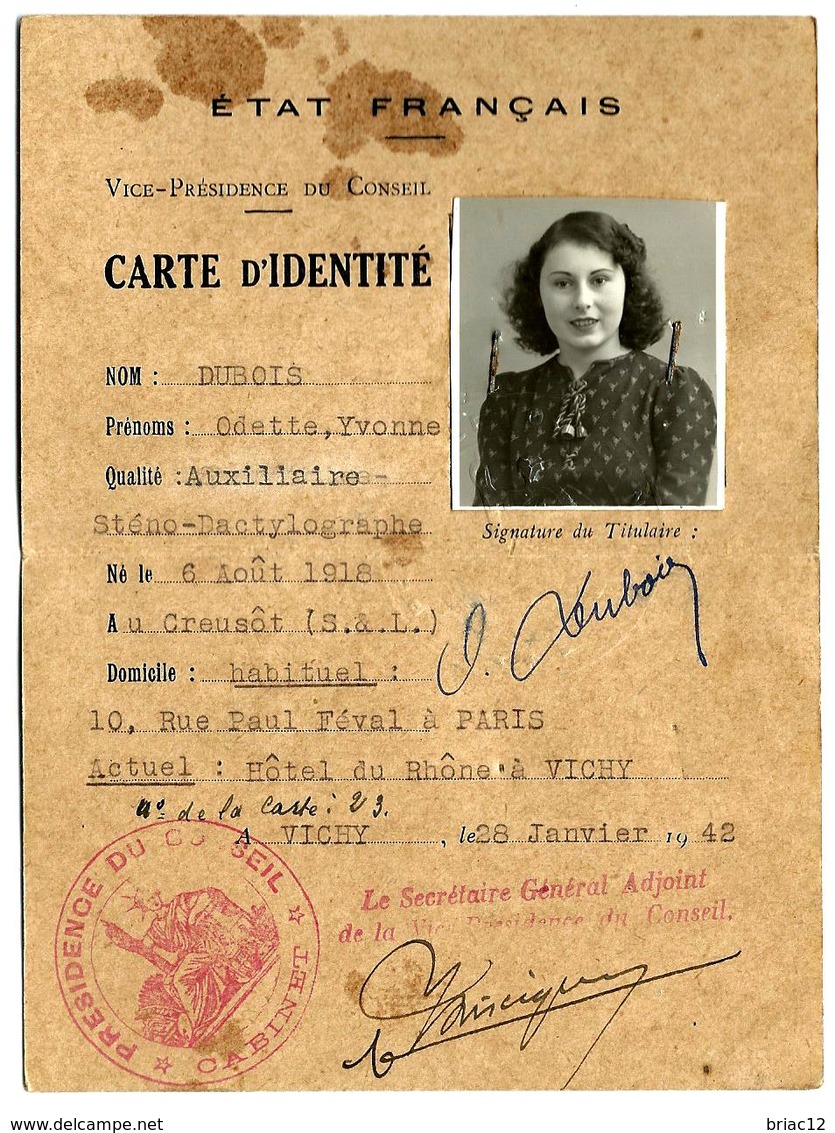 ÉTAT FRANÇAIS
VICE-PRÉSIDENCE DU CONSEIL
CARTE D'IDENTITÉ
NOM : DUBOIS
Prénoms : Odette, Yvonne
Qualité : Auxiliaire-
Sténo-Dactylographe
Né le 6 Août 1918
A u Creusôt (S.& L.)
Domicile : habituel :
10, Rue Paul Féval à PARIS
Actuel : Hôtel du Rhône à VICHY
n° de la carte : 23.
A VICHY, le 28 Janvier 1942
Signature du Titulaire :
O. Dubois
Le Secrétaire Général Adjoint
de la Vice-Présidence du Conseil.
PRÉSIDENCE DU CONSEIL
CABINET
www.delcampe.net
briac12